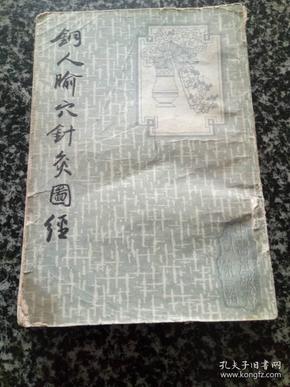 銅人腧穴針灸圖經
孔夫子旧书网